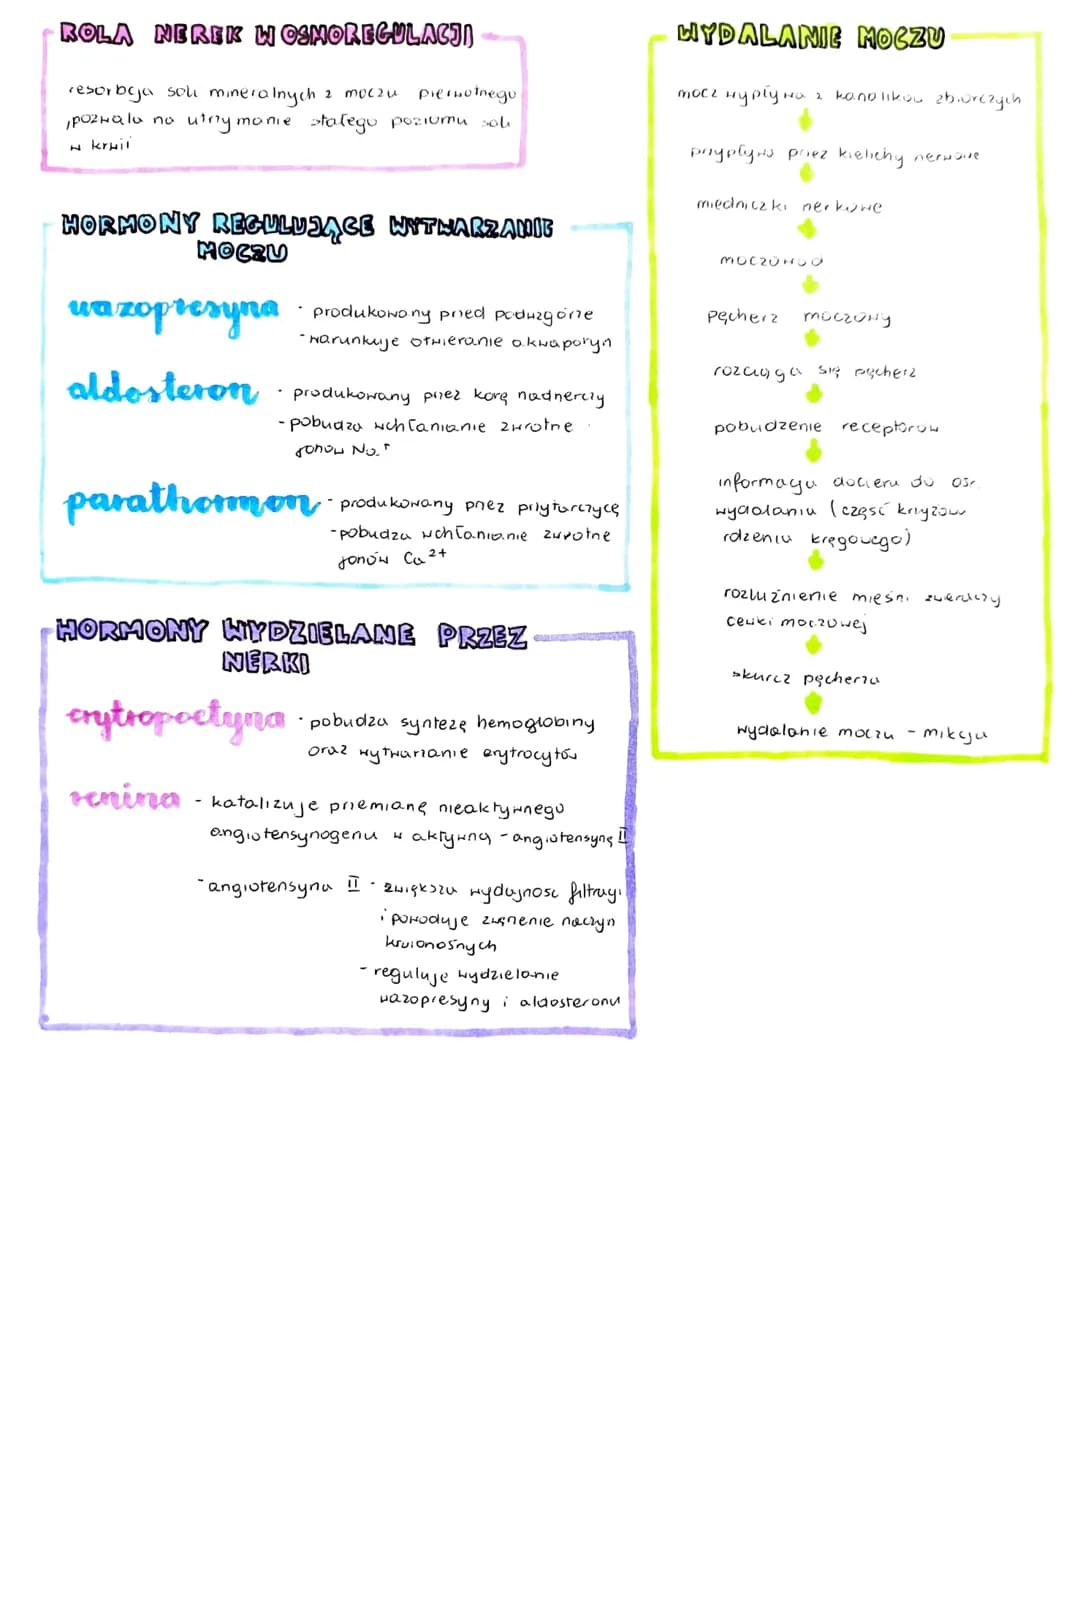 ROLA NEREK W OSMOREGULACJI
resorbcja soli mineralnych z moczu pierwotnego
,pozwala na utrzymanie stałego poziomu soli
w krwii
HORMONY REGULUJĄCE WYTWARZANIE
MOCZU
wazopresyna - produkowony przed podwzgórze
- warunkuje otwieranie akwaporyn
aldosteron - produkowany przez korę nadnerczy
- pobudza wchłanianie zwrotne
jonów Na+
parathormon - produkowany przez przytarczycę
- pobudza wchłanianie zwrotne
jonów Ca2+
HORMONY WYDZIELANE PRZEZ
NERKI
erytropoetyna - pobudza syntezę hemoglobiny
oraz wytwarzanie erytrocytów
renina - katalizuje przemianę nieaktywnego
angiotensynogenu w aktywną - angiotensynę II
- angiotensyna II - zwiększa wydajnosc filtracji
i powoduje zwęzenie naczyn
krwionośnych
- reguluje wydzielanie
wazopresyny i aldosteronu
WYDALANIE MOCZU
mocz wypływa z kanalików zbiorczych
przypływa przez kielichy nerwowe
miedniczki nerkowe
moczowod
pęcherz moczowy
rozciąga się pęcherz
pobudzenie receptorow
informacja dociera do osr.
wydalania (część krzyzow
rdzenia kręgowego)
rozluźnienie mieśni zwieraczy
cewki moczowej
skurcz pęcherza
wydalanie moczu - mikcja